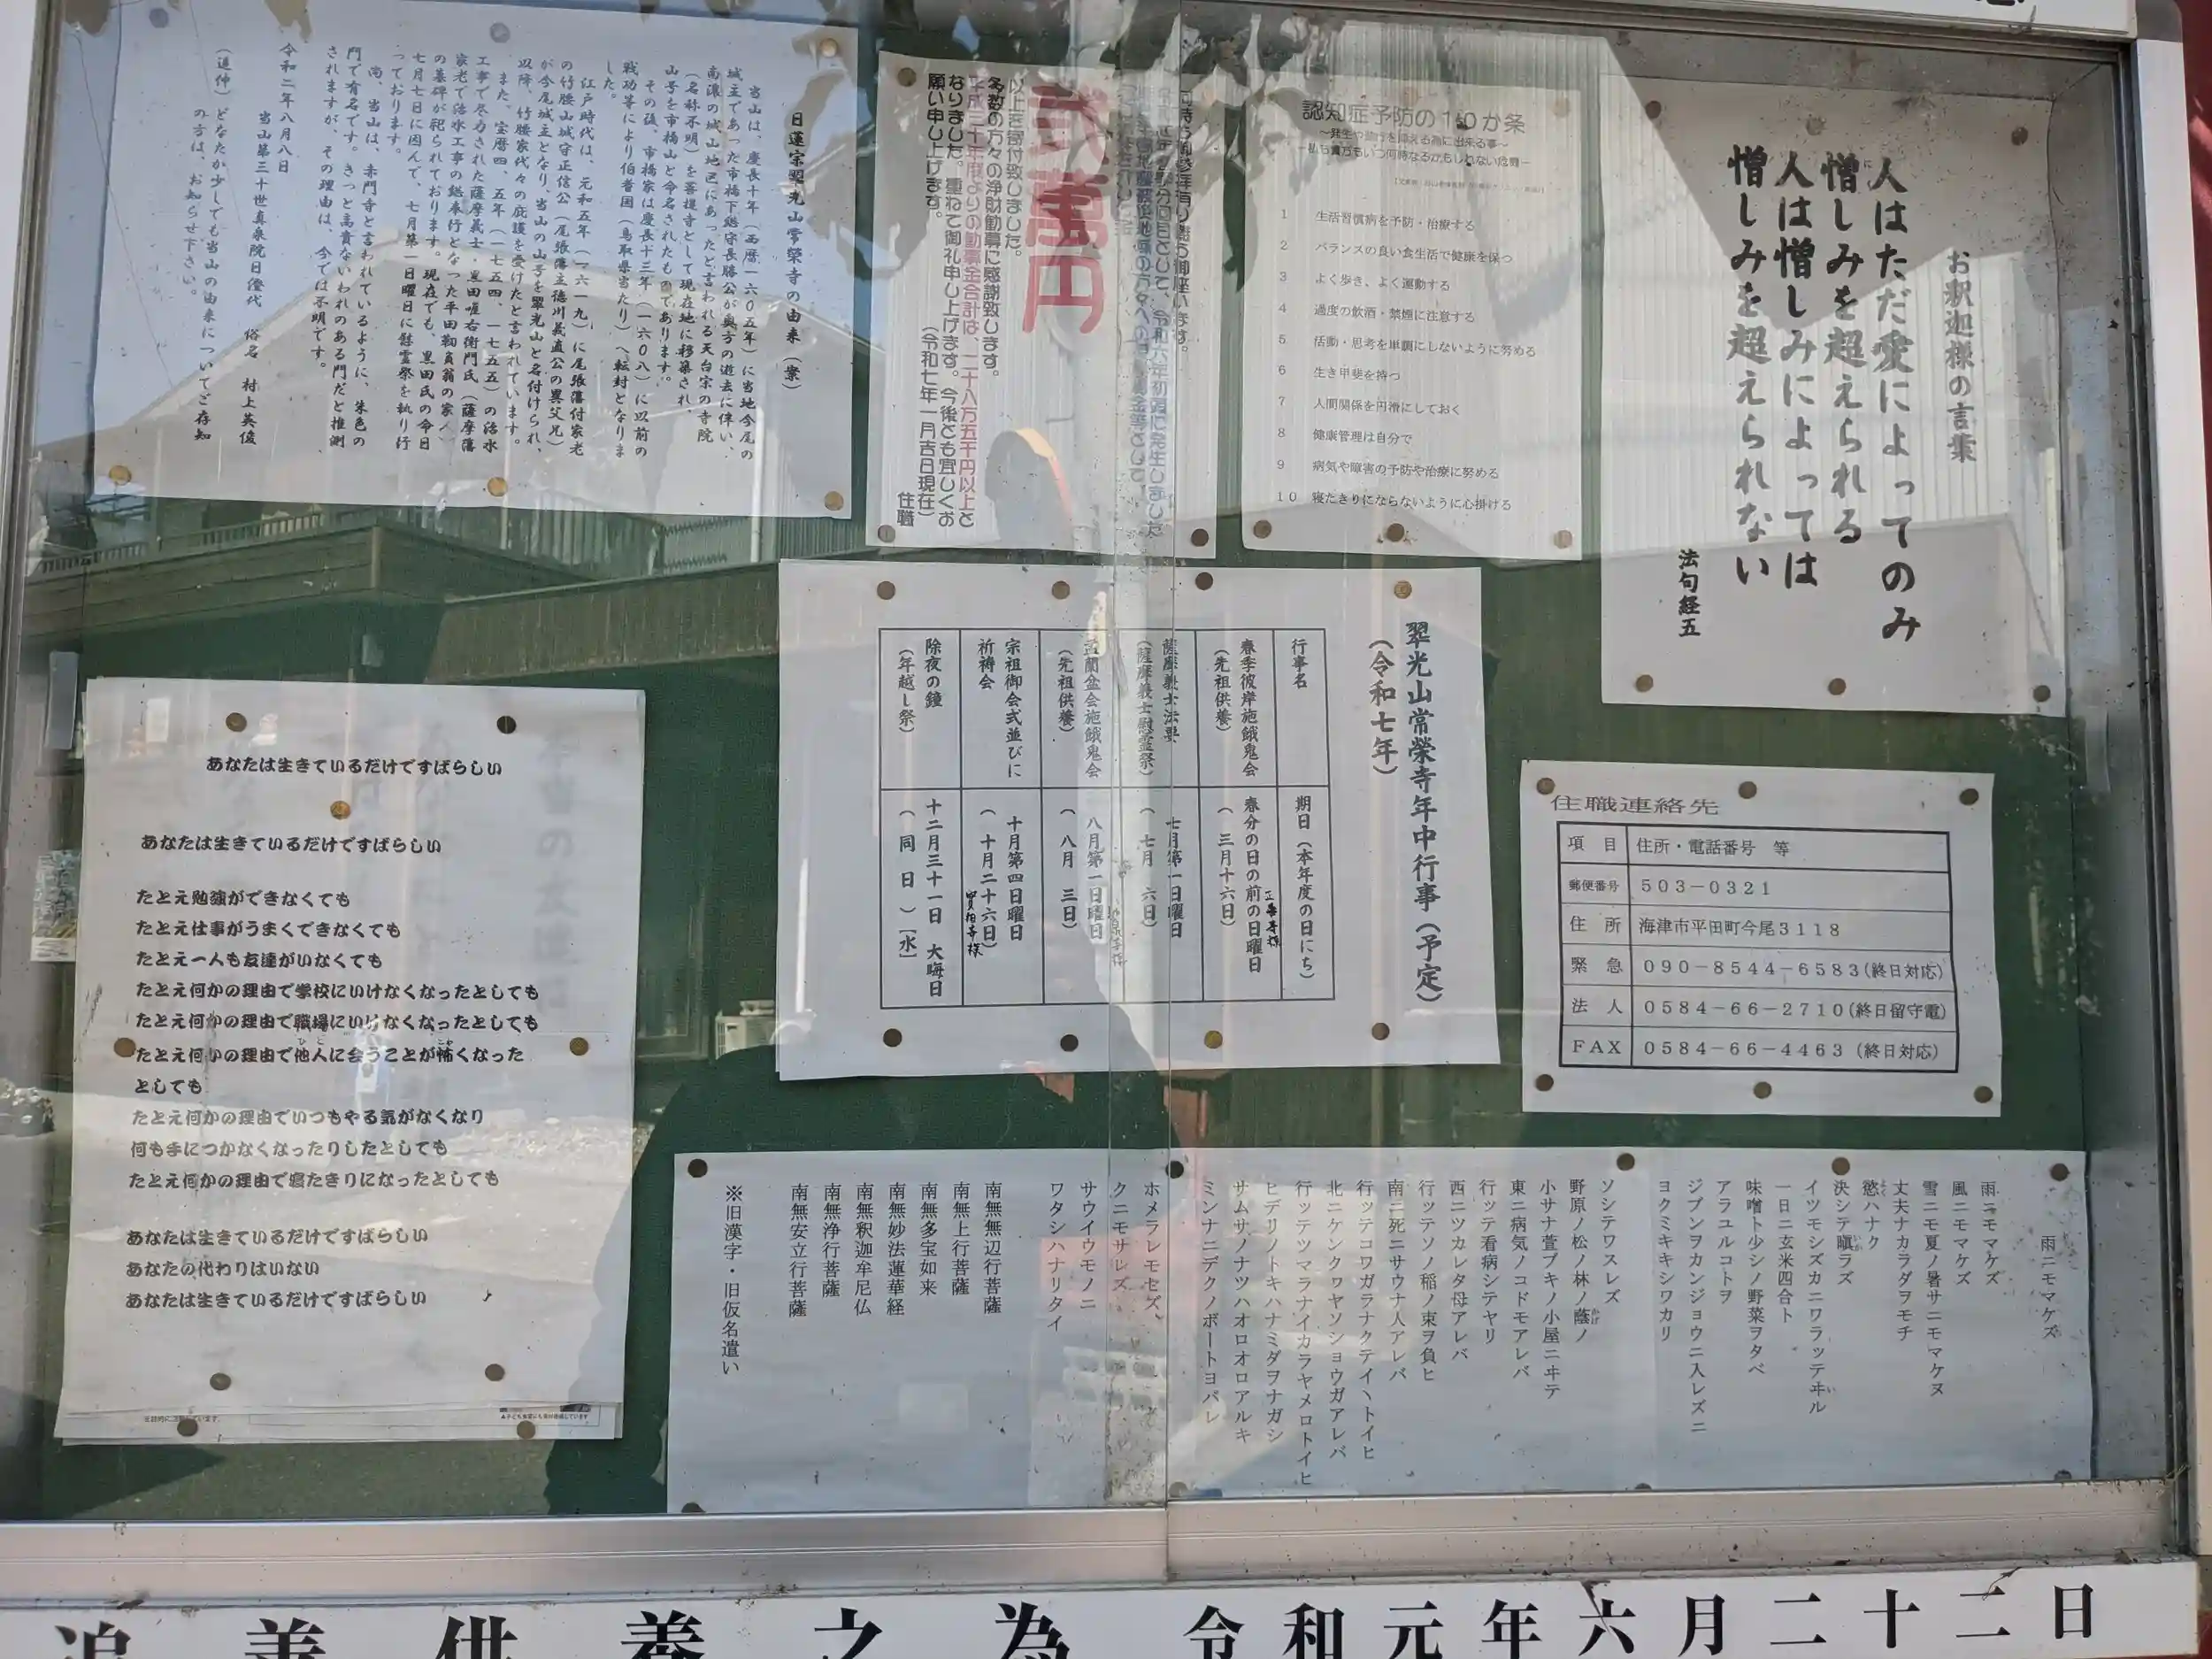 お釈迦様の言葉
人はただ愛によってのみ
憎しみを超えられる
人は憎しみによっては
憎しみを超えられない
法句経五
認知症予防の10か条
～発生や進行を抑える為に出来る事～
1 生活習慣病を予防・治療する
2 バランスの良い食生活で健康を保つ
3 よく歩き、よく運動する
4 過度の飲酒・禁煙に注意する
5 活動・思考を単調にしないように努める
6 生き甲斐を持つ
7 人間関係を円滑にしておく
8 健康管理は自分で
9 病気や障害の予防や治療に努める
10 寝たきりにならないように心掛ける
弐萬円
以上を寄付致しました。
多数の方々の浄財勧募に感謝致します。
平成三十年度よりの勧募金合計は、二十八万五千円以上と
なりました。重ねて御礼申し上げます。今後とも宜しくお
願い申し上げます。
（令和七年一月吉日現在）
住職
日蓮宗翠光山常榮寺の由来（案）
当山は、慶長十年（西暦一六０五年）に当地今尾の
城主であった市橋下総守長勝公が奥方の逝去に伴い、
南濃の城山地区にあったと言われる天台宗の寺院
（名称不明）を菩提寺として現在地に移築され、
山号を市橋山と命名されたものであります。
その後、市橋家は慶長十三年（一六０八）に以前の
戦功等により伯耆国（鳥取県当たり）へ転封となりま
した。
江戸時代は、元和五年（一六一九）に尾張藩付家老
の竹腰山城守正信公（尾張藩主徳川義直公の異父兄）
が今尾城主となり、当山の山号を翠光山と名付けられ、
以降、竹腰家代々の庇護を受けたと言われています。
また、宝暦四、五年（一七五四、一七五五）の治水
工事で尽力された薩摩義士・黒田唯右衛門氏（薩摩藩
家老で治水工事の総奉行となった平田靱負翁の家人）
の墓碑が祀られております。現在でも、黒田氏の命日
七月七日に因んで、七月第一日曜日に慰霊祭を執り行
っております。
尚、当山は、赤門寺と言われているように、朱色の
門で有名です。きっと高貴ないわれのある門だと推測
されますが、その理由は、今では不明です。
令和二年八月八日
当山第三十世真泉院日澄代 俗名 村上英俊
（追伸）どなたか少しでも当山の由来についてご存知
の方は、お知らせ下さい。
翠光山常榮寺年中行事（予定）
（令和七年）
行事名 期日（本年度の日にち）
春季彼岸施餓鬼会 春分の日の前の日曜日
（先祖供養） （ 三月十六日）
薩摩義士法要 七月第一日曜日
（薩摩義士慰霊祭） （ 七月 六日）
盂蘭盆会施餓鬼会 八月第一日曜日
（先祖供養） （ 八月 三日）
宗祖御会式並びに 十月第四日曜日
祈祷会 （ 十月二十六日）
除夜の鐘 十二月三十一日 大晦日
（年越し祭） （ 同 日 ）［水］
住職連絡先
項目 住所・電話番号 等
郵便番号 503－0321
住所 海津市平田町今尾3118
緊急 090－8544－6583(終日対応)
法人 0584－66－2710(終日留守電)
FAX 0584－66－4463（終日対応）
あなたは生きているだけですばらしい
あなたは生きているだけですばらしい
たとえ勉強ができなくても
たとえ仕事がうまくできなくても
たとえ一人も友達がいなくても
たとえ何かの理由で学校にいけなくなったとしても
たとえ何かの理由で職場にいけなくなったとしても
たとえ何かの理由で他人に会うことが怖くなった
としても
たとえ何かの理由でいつもやる気がなくなり
何も手につかなくなったりしたとしても
たとえ何かの理由で寝たきりになったとしても
あなたは生きているだけですばらしい
あなたの代わりはいない
あなたは生きているだけですばらしい
雨ニモマケズ
雨ニモマケズ
風ニモマケズ
雪ニモ夏ノ暑サニモマケヌ
丈夫ナカラダヲモチ
慾ハナク
決シテ瞋ラズ
イツモシズカニワラッテヰル
一日ニ玄米四合ト
味噌ト少シノ野菜ヲタベ
アラユルコトヲ
ジブンヲカンジョウニ入レズニ
ヨクミキキシワカリ
ソシテワスレズ
野原ノ松ノ林ノ蔭ノ
小サナ萱ブキノ小屋ニヰテ
東ニ病気ノコドモアレバ
行ッテ看病シテヤリ
西ニツカレタ母アレバ
行ッテソノ稲ノ束ヲ負ヒ
南ニ死ニサウナ人アレバ
行ッテコワガラナクテイヽトイヒ
北ニケンクワヤソショウガアレバ
行ッテツマラナイカラヤメロトイヒ
ヒデリノトキハナミダヲナガシ
サムサノナツハオロオロアルキ
ミンナニデクノボートヨバレ
ホメラレモセズ、
クニモサレズ
サウイウモノニ
ワタシハナリタイ
南無無辺行菩薩
南無上行菩薩
南無多宝如来
南無妙法蓮華経
南無釈迦牟尼仏
南無浄行菩薩
南無安立行菩薩
※旧漢字・旧仮名遣い
追善供養之為 令和元年六月二十二日